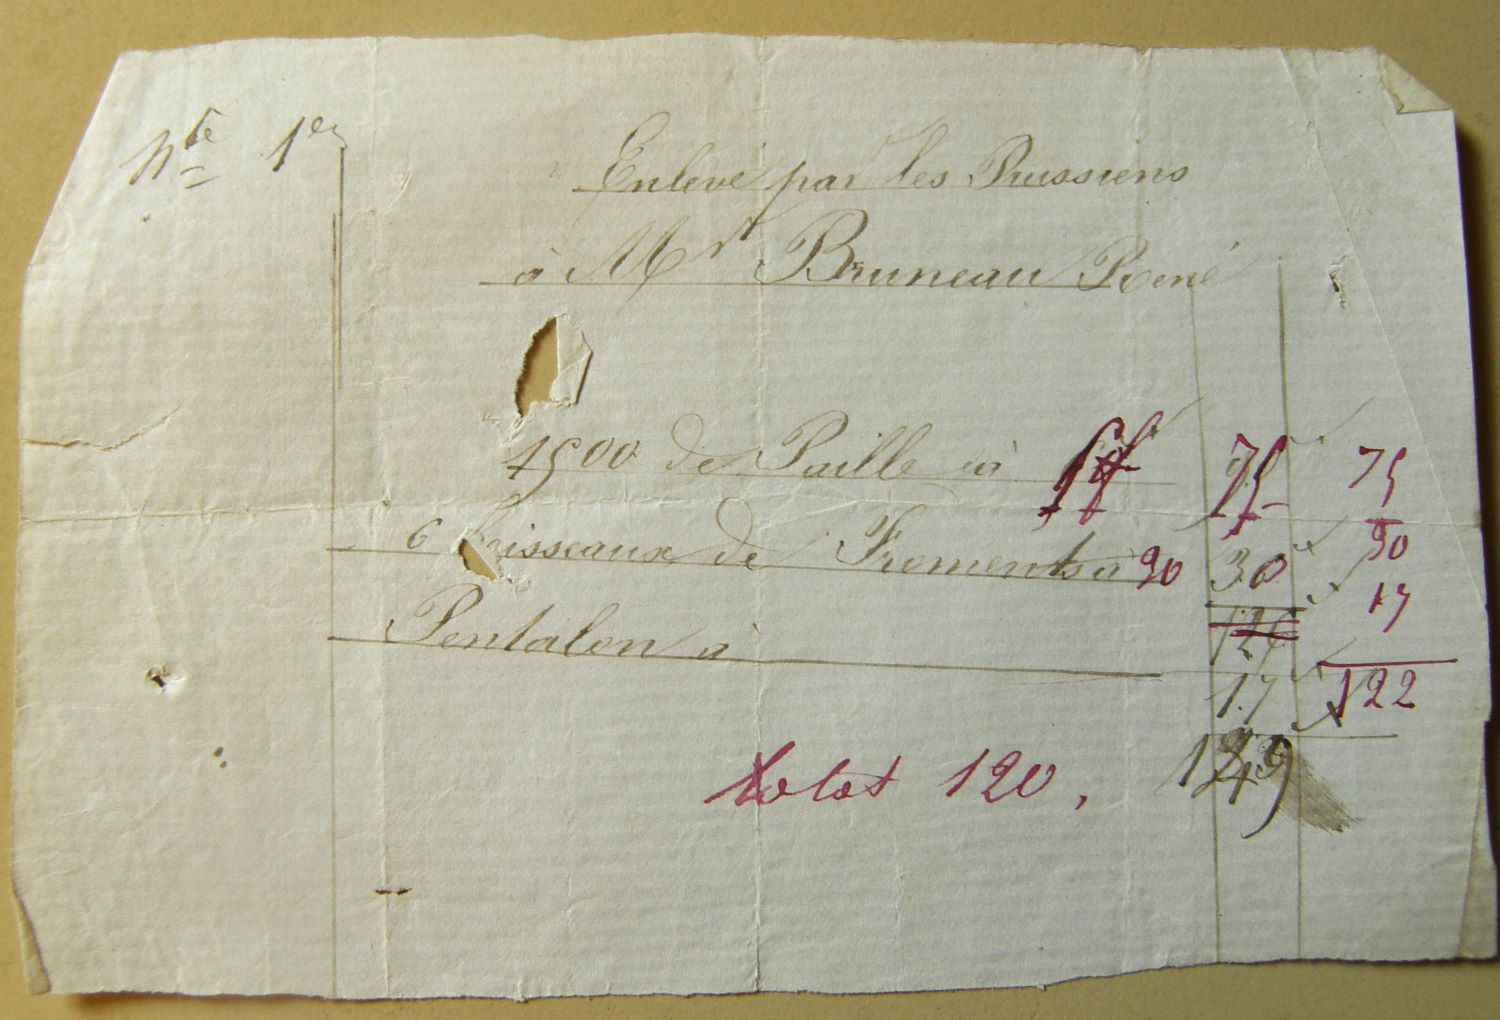 Nte 1er
Enlevé par les Prussiens
à Mr Bruneau René
1500 de Paille à 75 75
6 boisseaux de Froment à 30 30 30
Pentalon à 17
17 122
total 120,